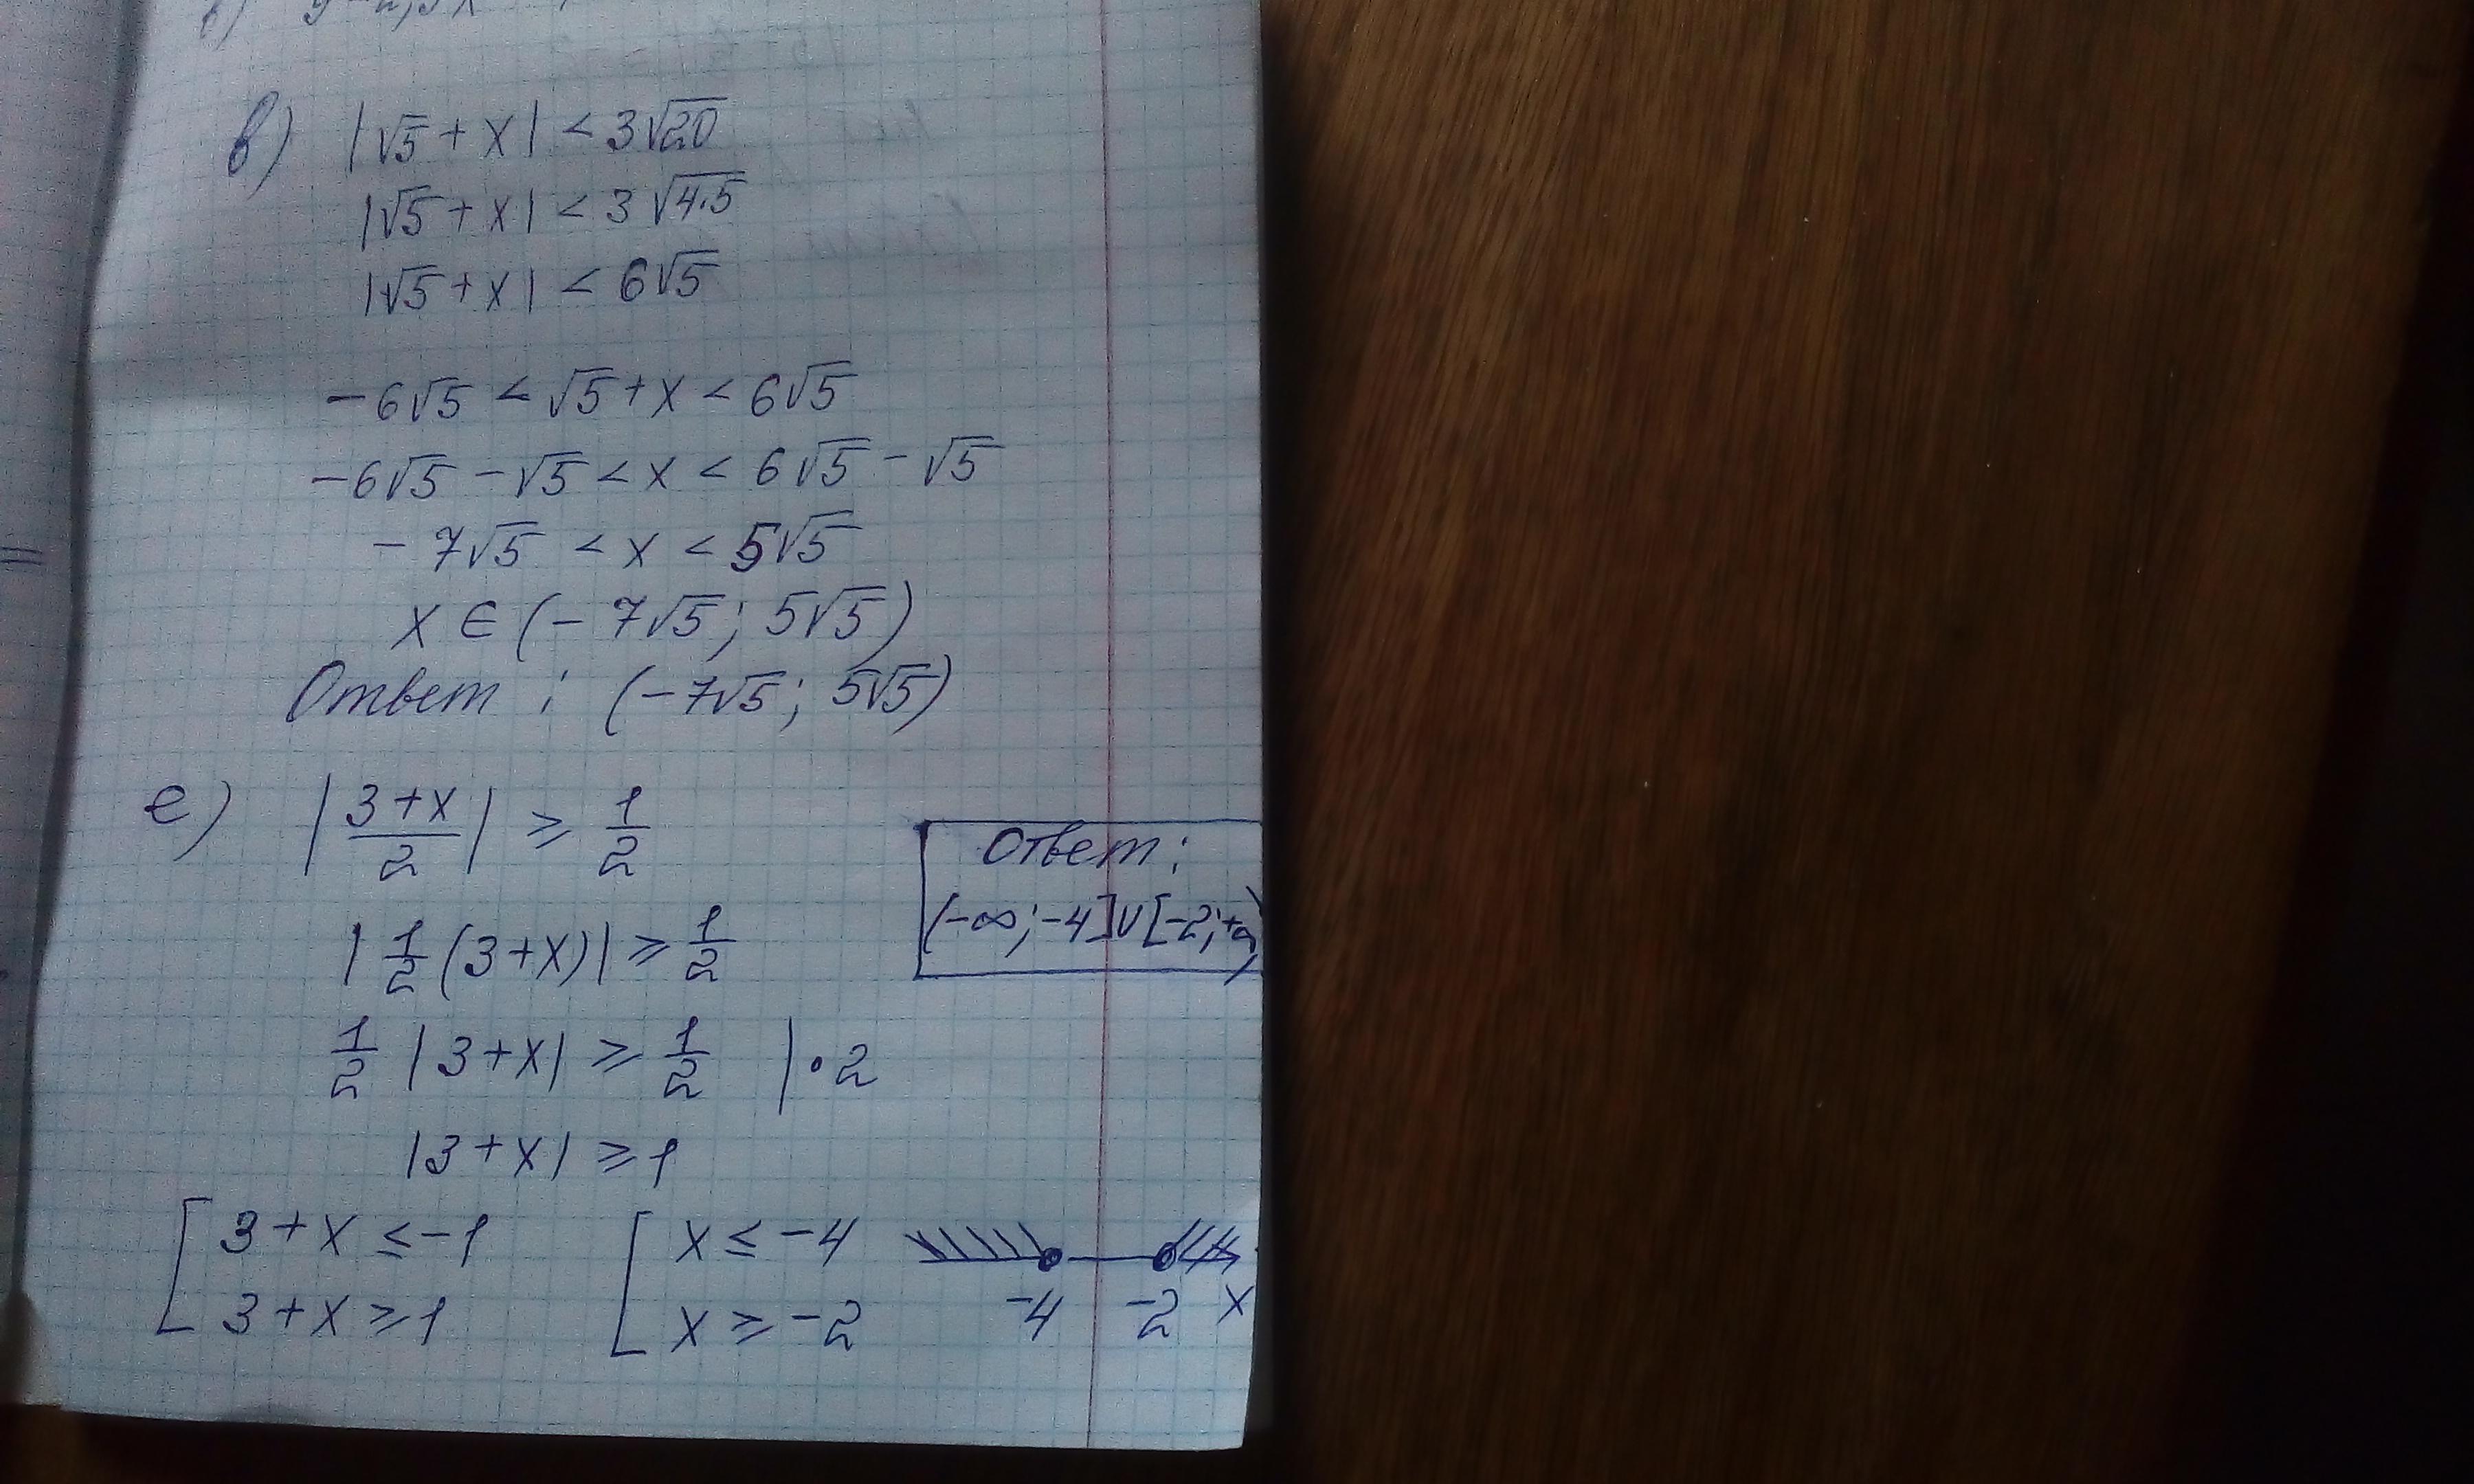 в) |√5 + x| < 3√20
|√5 + x| < 3√4·5
|√5 + x| < 6√5
-6√5 < √5 + x < 6√5
-6√5 - √5 < x < 6√5 - √5
-7√5 < x < 5√5
x ∈ (-7√5; 5√5)
Ответ: (-7√5; 5√5)
е) |(3+x)/2| ≥ 1/2
|1/2 (3+x)| ≥ 1/2
1/2 |3+x| ≥ 1/2 | · 2
|3+x| ≥ 1
[ 3+x ≤ -1 [ x ≤ -4
3+x ≥ 1 x ≥ -2
-4 -2 x
Ответ:
(-∞; -4] ∪ [-2; +∞)